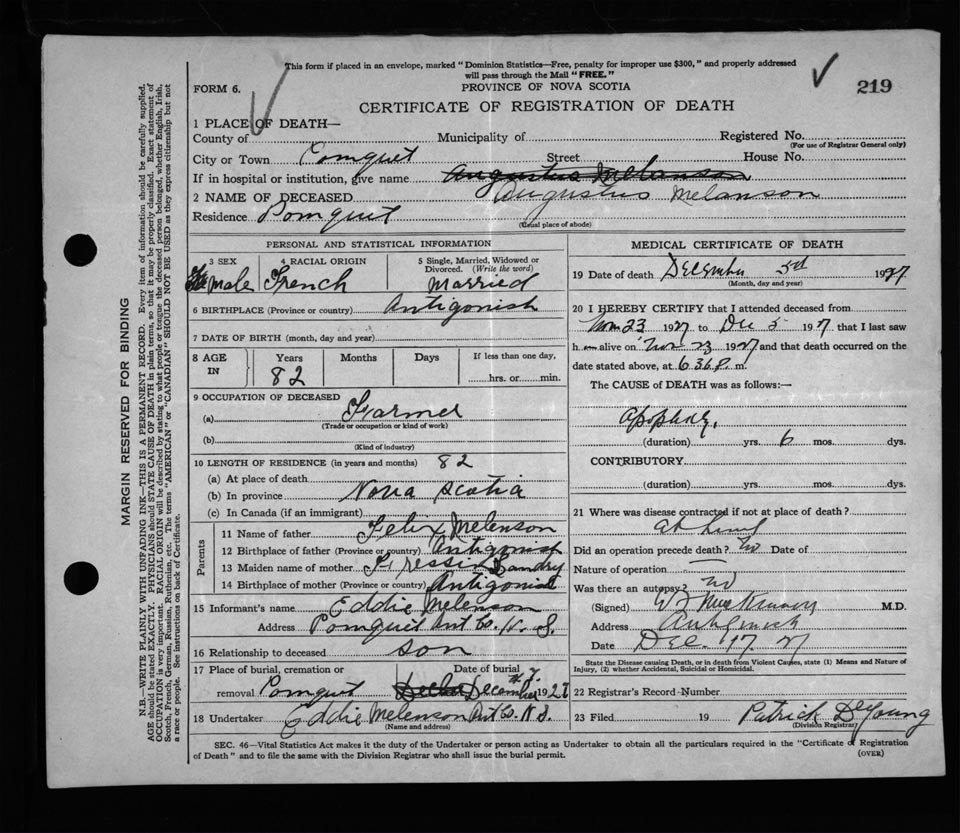 This form if placed in an envelope, marked "Dominion Statistics—Free, penalty for improper use $300," and properly addressed
will pass through the Mail "FREE."
219
FORM 6.
PROVINCE OF NOVA SCOTIA
CERTIFICATE OF REGISTRATION OF DEATH
1 PLACE OF DEATH—
County of Municipality of Registered No.
(For use of Registrar General only)
City or Town Pomquet Street House No.
If in hospital or institution, give name Augustus Melanson
2 NAME OF DECEASED Augustus Melanson
Residence Pomquet
(Usual place of abode)
PERSONAL AND STATISTICAL INFORMATION
3 SEX 4 RACIAL ORIGIN 5 Single, Married, Widowed or Divorced. (Write the word)
male French Married
6 BIRTHPLACE (Province or country) Antigonish
7 DATE OF BIRTH (month, day and year)
8 AGE IN Years Months Days If less than one day,
82 hrs. or min.
9 OCCUPATION OF DECEASED
(a) Farmer
(Trade or occupation or kind of work)
(b)
(Kind of industry)
10 LENGTH OF RESIDENCE (in years and months) 82
(a) At place of death
(b) In province Nova Scotia
(c) In Canada (if an immigrant)
Parents
11 Name of father Felix Melenson
12 Birthplace of father (Province or country) Antigonish
13 Maiden name of mother Landry
14 Birthplace of mother (Province or country) Antigonish
15 Informant's name Eddie Melenson
Address Pomquet Ant Co. N. S.
16 Relationship to deceased son
17 Place of burial, cremation or Date of burial
removal Pomquet December 7th 1927
18 Undertaker Eddie Melenson Ant Co. N S.
(Name and address)
MEDICAL CERTIFICATE OF DEATH
19 Date of death December 5d 1927
(Month, day and year)
20 I HEREBY CERTIFY that I attended deceased from
Nov 23 1927 to Dec 5 1927, that I last saw
h im alive on Nov 23 1927 and that death occurred on the
date stated above, at 6 30 P. m.
The CAUSE of DEATH was as follows:—
Apoplexy.
(duration) yrs. 6 mos. dys.
CONTRIBUTORY.
(duration) yrs. mos. dys.
21 Where was disease contracted if not at place of death?
at home
Did an operation precede death? no Date of
Nature of operation
Was there an autopsy? no
(Signed) M.D.
Address Antigonish
Date Dec. 17 27
State the Disease causing Death, or in death from Violent Causes, state (1) Means and Nature of
Injury, (2) whether Accidental, Suicidal or Homicidal.
22 Registrar's Record Number
23 Filed 19 Patrick DeYoung
(Division Registrar)
SEC. 46—Vital Statistics Act makes it the duty of the Undertaker or person acting as Undertaker to obtain all the particulars required in the "Certificate of Registration
of Death" and to file the same with the Division Registrar who shall issue the burial permit.
(OVER)
MARGIN RESERVED FOR BINDING
N.B.—WRITE PLAINLY WITH UNFADING INK—THIS IS A PERMANENT RECORD. Every item of information should be carefully supplied.
AGE should be stated EXACTLY. PHYSICIANS should STATE CAUSE OF DEATH in plain terms, so that it may be properly classified. Exact statement of
OCCUPATION is very important. RACIAL ORIGIN will be described by stating to what people or tongue the deceased person belonged, whether English, Irish,
Scotch, French, German, Russian, Ruthenian, etc. The terms "AMERICAN" or "CANADIAN" SHOULD NOT BE USED as they express citizenship but not
a race or people. See instructions on back of Certificate.